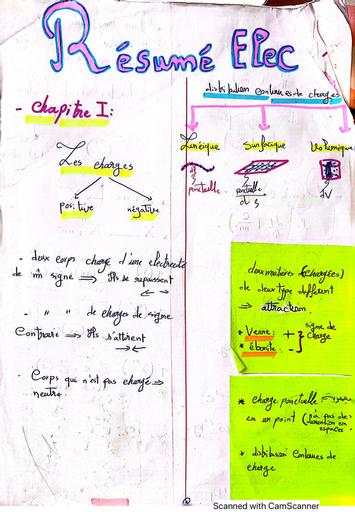 Résumé Elec
- Chapitre I:
Les charges
positive négative
- deux corps chargé d'une electricité
de m̂ signe ⇒ Ils se repoussent
- " " de charges de signe
Contraire ⇒ Ils s'attirent
- Corps qui n'est pas chargé ⇒
neutre.
distribution continues de charges
Linéique Surfacique Volumique
ponctuelle ponctuelle
dS dV
deux matières (chargées)
de deux type different
⇒ attraction.
* Verre: + signe de
* ébonite: - charge
* charge ponctuelle
en un point (n'a pas de
dimention en
espaces.
* distribution continues de
charge
Scanned with CamScanner